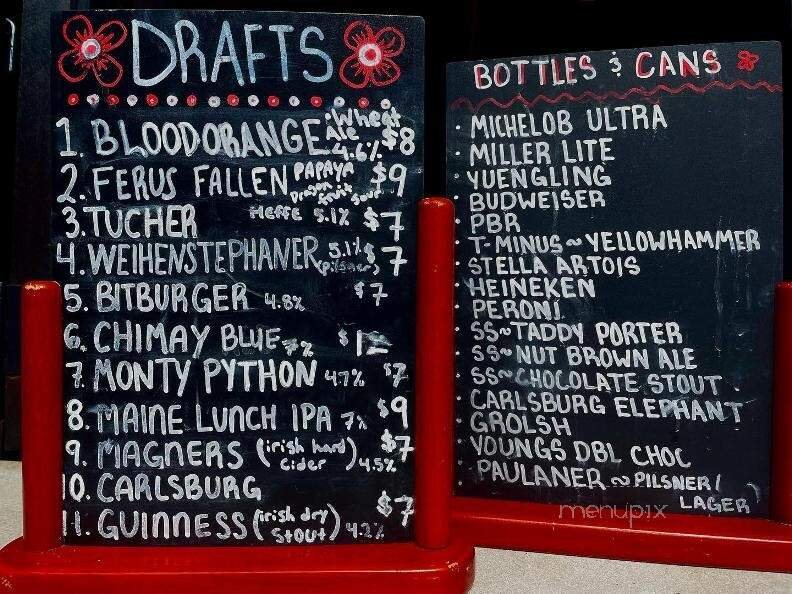 DRAFTS
1. BLOODORANGE: Wheat Ale 4.6% $8
2. FERUS FALLEN PAPAYA Dragon fruit sour $9
3. TUCHER HEFFE 5.1% $7
4. WEIHENSTEPHANER 5.1% (pilsner) $7
5. BITBURGER 4.8% $7
6. CHIMAY BLUE 7%
7. MONTY PYTHON 4.7% $7
8. MAINE LUNCH IPA 7% $9
9. MAGNERS (irish hard cider) 4.5% $7
10. CARLSBURG
11. GUINNESS (irish dry stout) 4.2% $7
BOTTLES & CANS
· MICHELOB ULTRA
· MILLER LITE
· YUENGLING
· BUDWEISER
· PBR
· T-MINUS~YELLOWHAMMER
· STELLA ARTOIS
· HEINEKEN
· PERONI
· SS~TADDY PORTER
· SS~NUT BROWN ALE
· SS~CHOCOLATE STOUT
· CARLSBURG ELEPHANT
· GROLSH
· YOUNGS DBL CHOC
· PAULANER ~ PILSNER/
LAGER
menupix